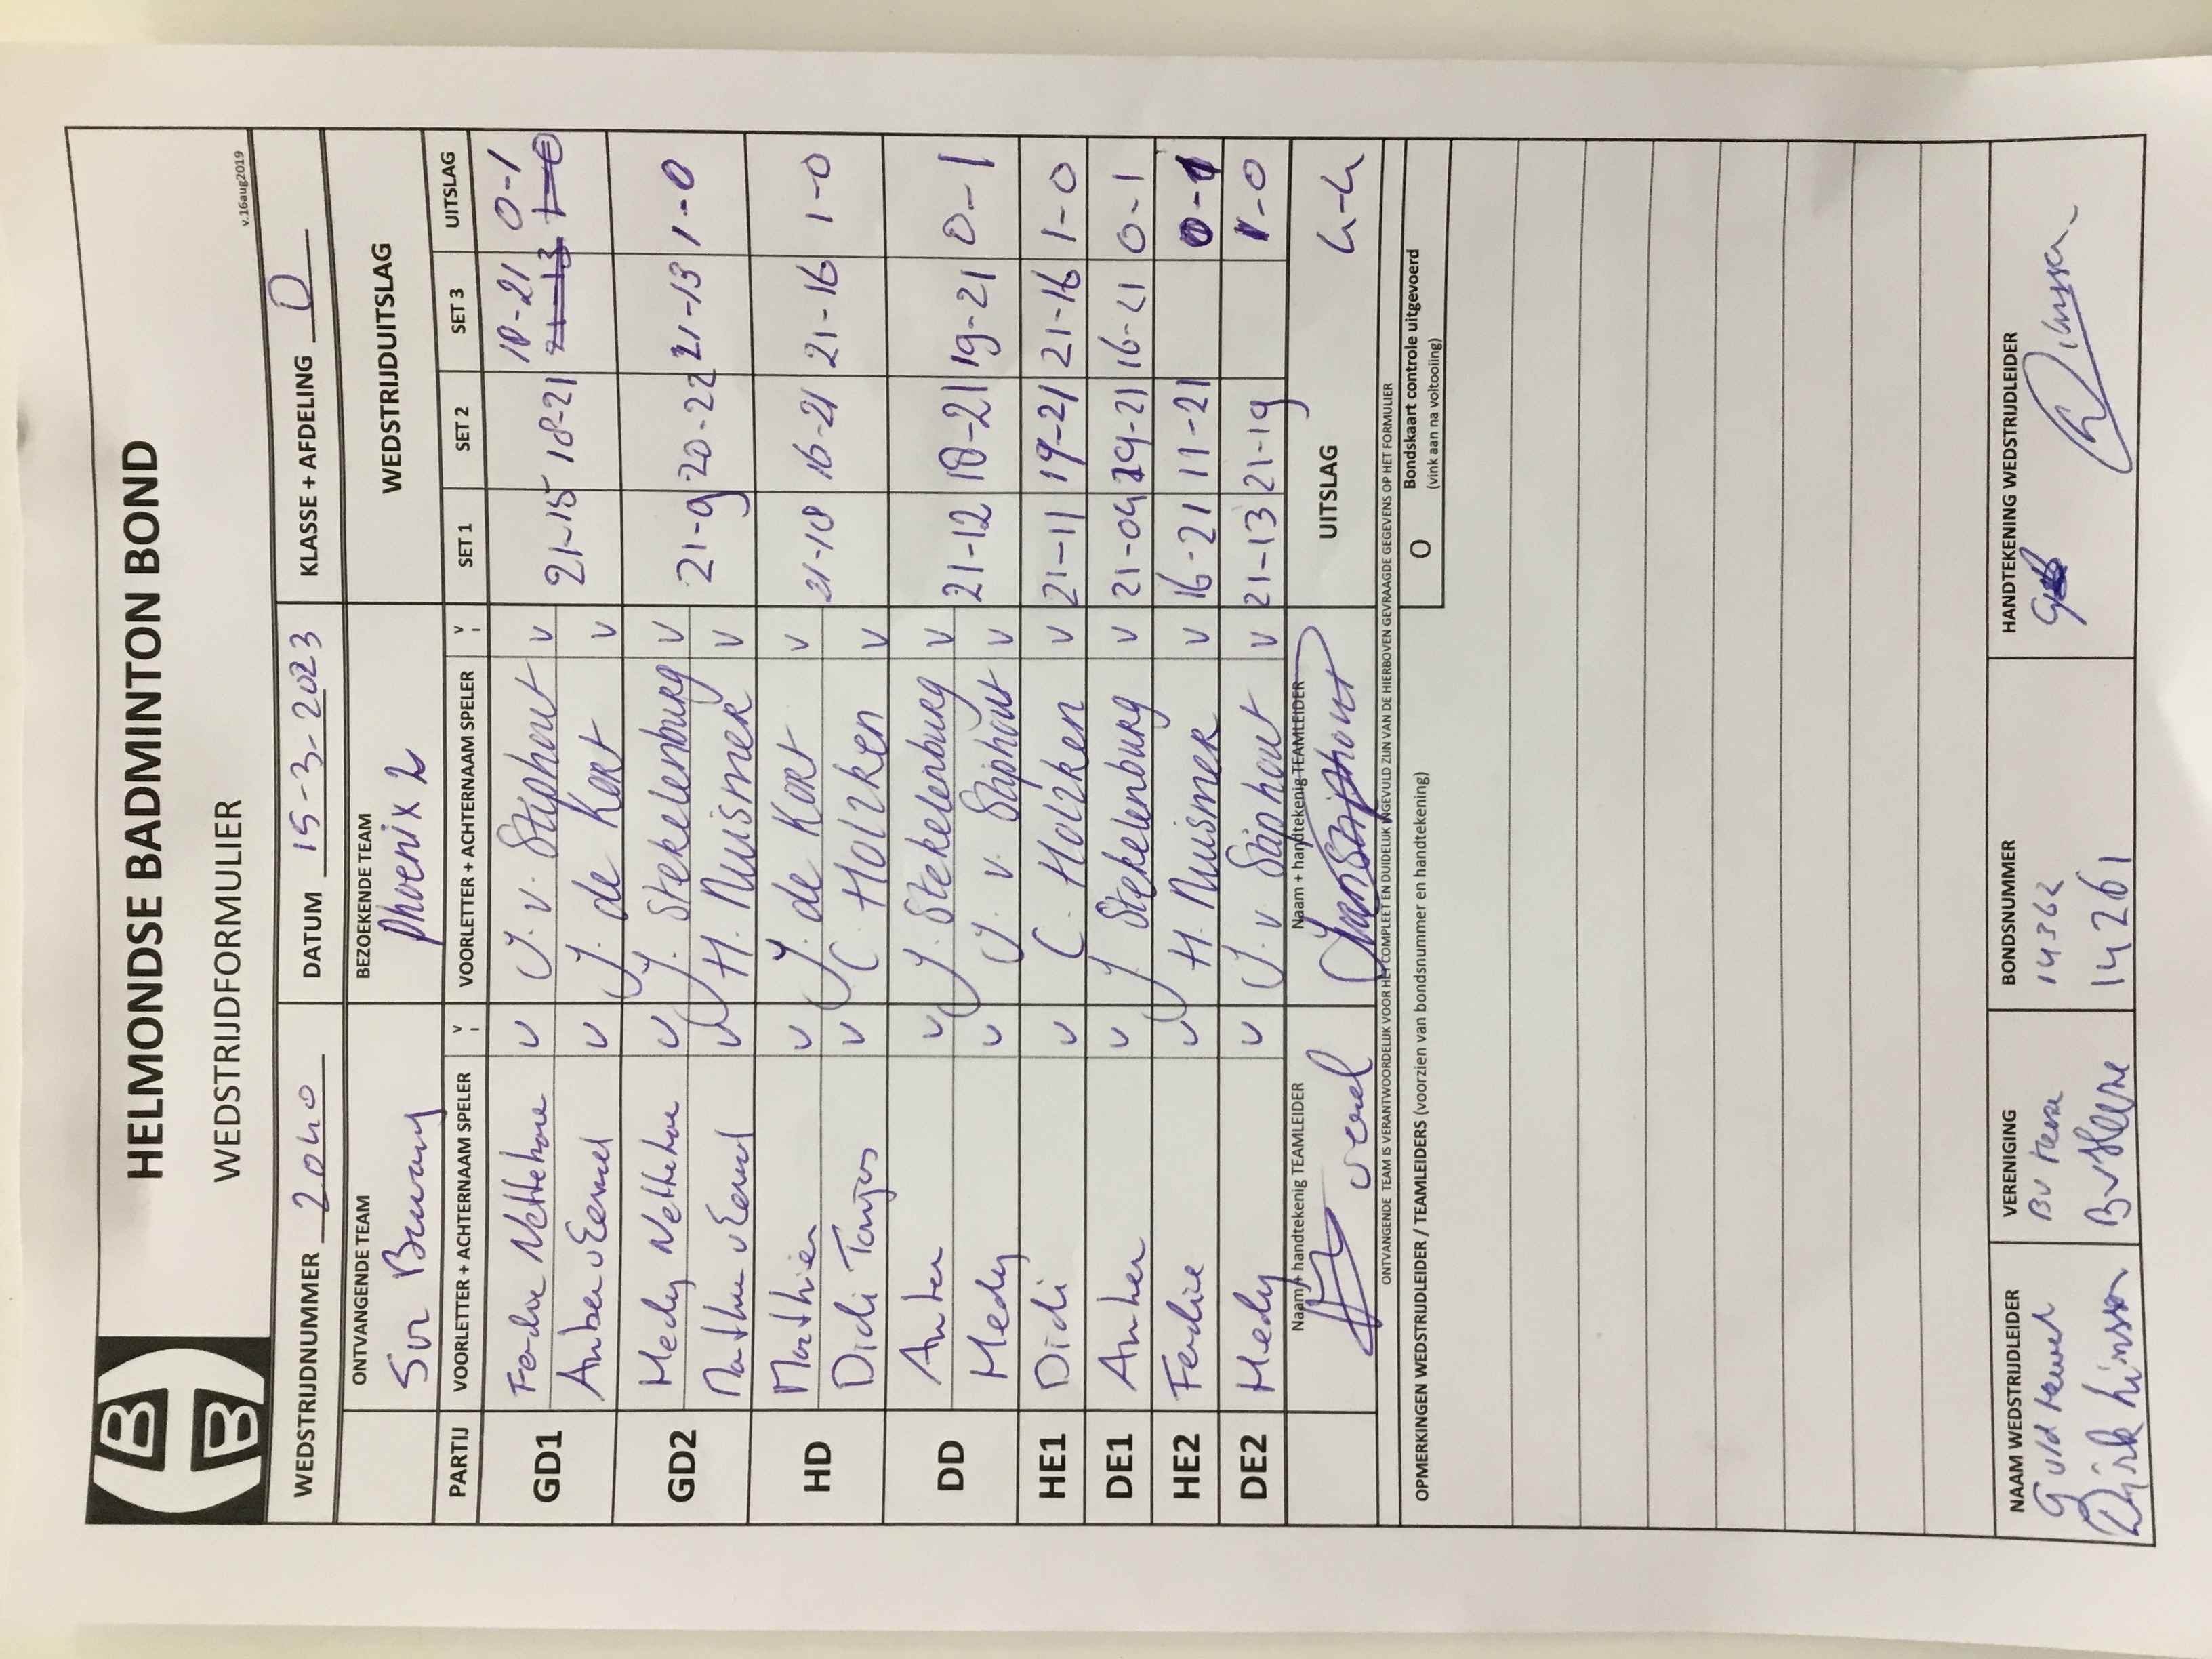 HELMONDSE BADMINTON BOND
WEDSTRIJDFORMULIER
v.16aug2019
WEDSTRIJDNUMMER 2040 DATUM 15-3-2023 KLASSE + AFDELING D
ONTVANGENDE TEAM BEZOEKENDE TEAM WEDSTRIJDUITSLAG
Phoenix 2
PARTIJ VOORLETTER + ACHTERNAAM SPELER V VOORLETTER + ACHTERNAAM SPELER V SET 1 SET 2 SET 3 UITSLAG
GD1 v J. v. Stiphout v 21-15 18-21 18-21 0-1
v J. de Kort v 21-13 1-0
GD2 Hedy v J. Stekelenburg v 21-9 20-22 21-13 1-0
v H. Muismer v
HD Mathieu v J. de Kort v 21-18 16-21 21-16 1-0
Didi v C. Holzken v
DD v J. Stekelenburg v 21-12 18-21 19-21 0-1
Hedy v J. v. Stiphout v
HE1 Didi v C. Holzken v 21-11 19-21 21-16 1-0
DE1 v J. Stekelenburg v 21-04 19-21 16-21 0-1
HE2 Ferdie v H. Muismer v 16-21 11-21 0-1
DE2 Hedy v J. v. Stiphout v 21-13 21-19 1-0
Naam + handtekenig TEAMLEIDER Naam + handtekenig TEAMLEIDER UITSLAG 4-4
ONTVANGENDE TEAM IS VERANTWOORDELIJK VOOR HET COMPLEET EN DUIDELIJK INGEVULD ZIJN VAN DE HIERBOVEN GEVRAAGDE GEGEVENS OP HET FORMULIER
OPMERKINGEN WEDSTRIJDLEIDER / TEAMLEIDERS (voorzien van bondsnummer en handtekening) O Bondskaart controle uitgevoerd
(vink aan na voltooiing)
NAAM WEDSTRIJDLEIDER VERENIGING BONDSNUMMER HANDTEKENING WEDSTRIJDLEIDER
BV 14362
Dirk Linssen 14261